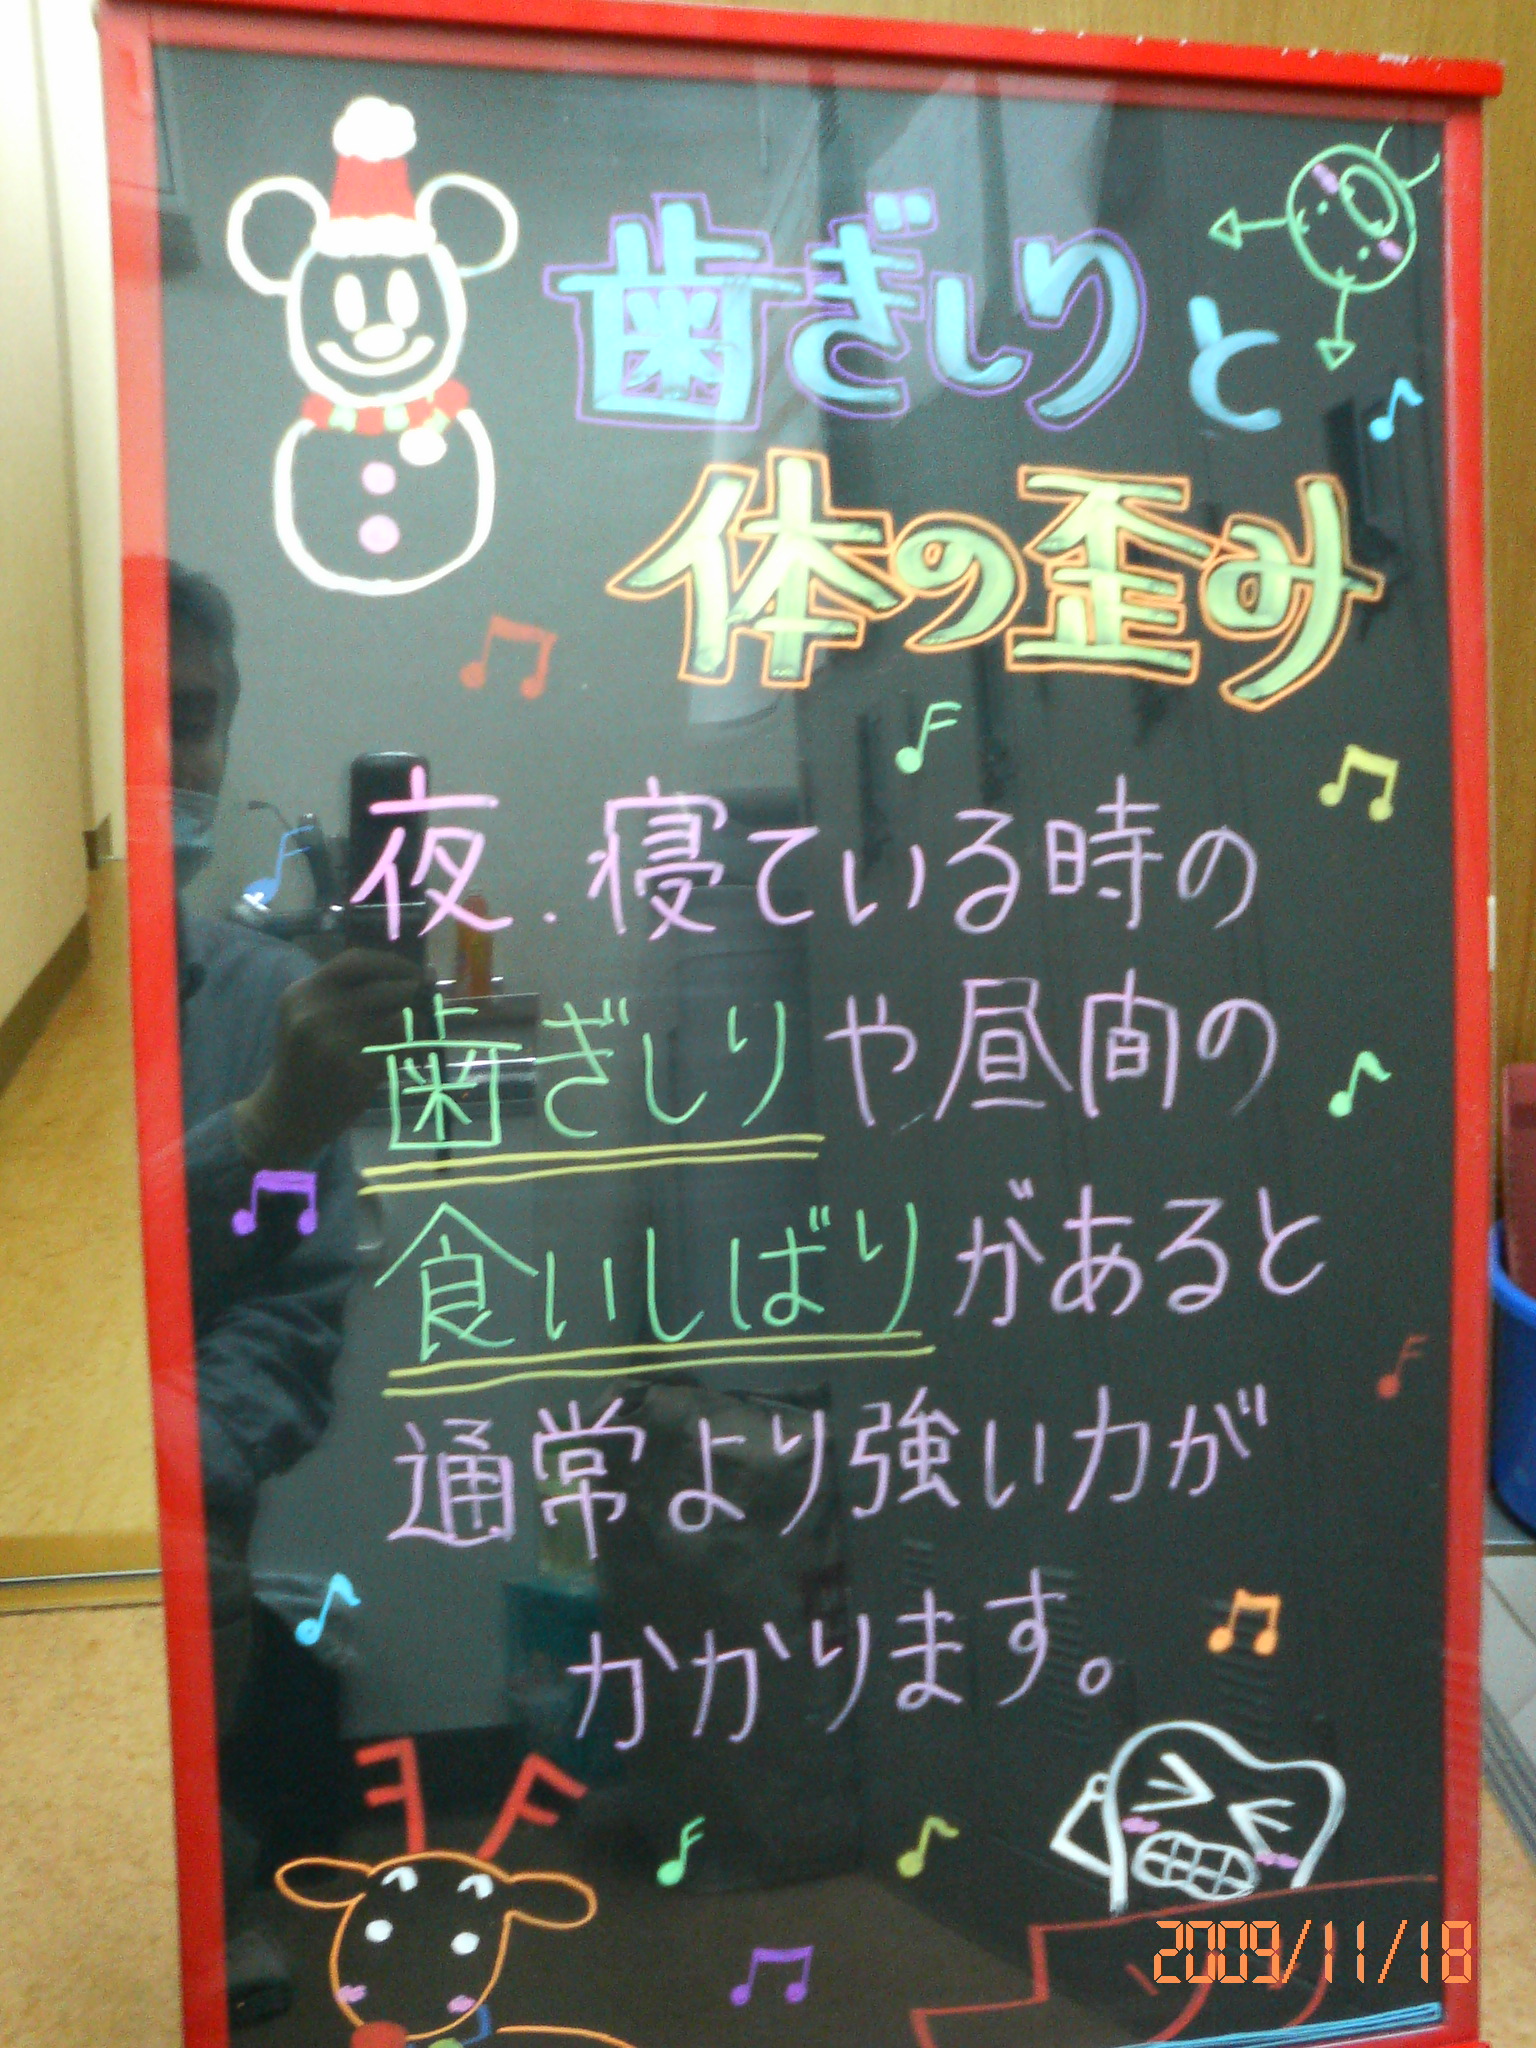 歯ぎしりと
体の歪み
夜.寝ている時の
歯ぎしりや昼間の
食いしばりがあると
通常より強い力が
かかります。
2009/11/18